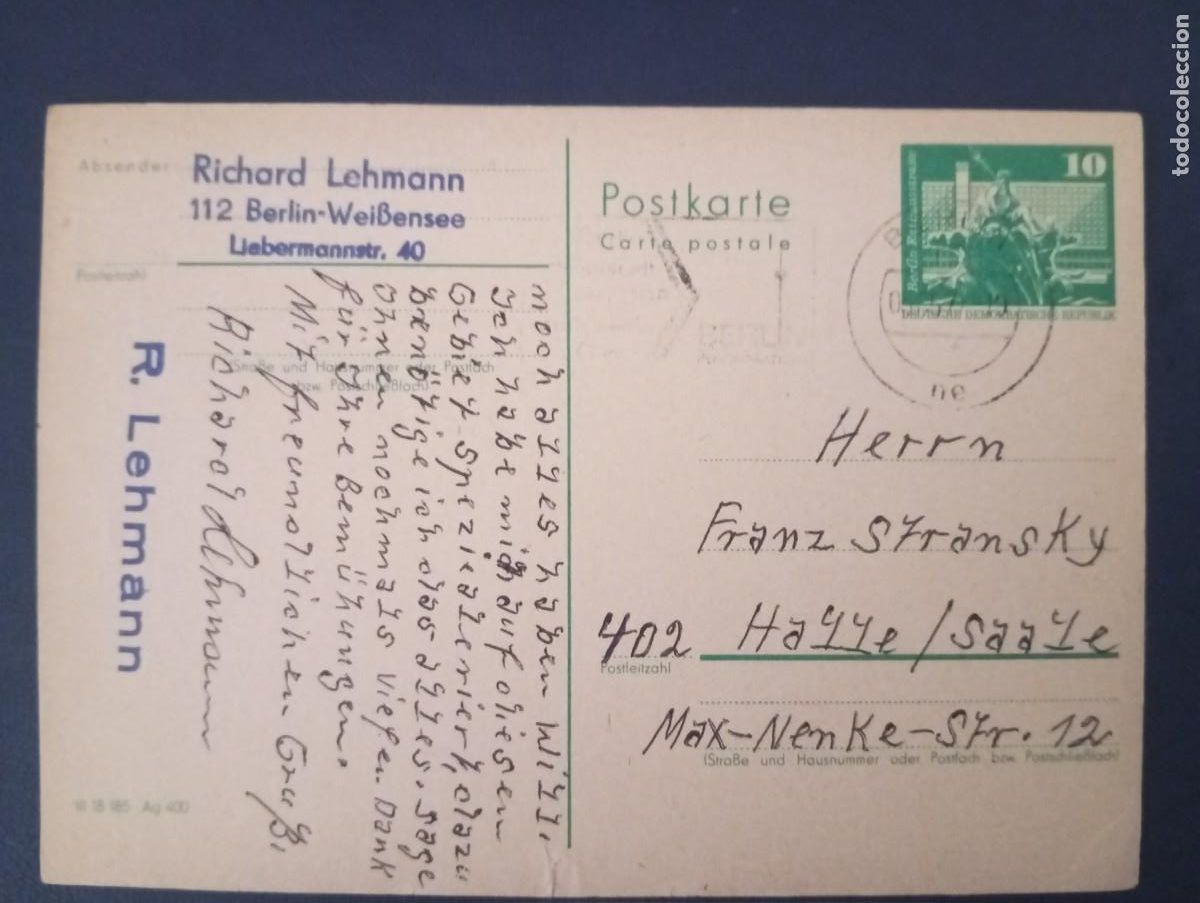 Absender
Richard Lehmann
112 Berlin-Weißensee
Liebermannstr. 40
Postleitzahl
(Straße und Hausnummer oder Postfach
bzw. Postschließfach)
noch alles haben will.
Ich habe mich auf diesem
Gebiet spezialisiert, dazu
benötige ich das alles. Sage
Ihnen nochmals vielen Dank
für Ihre Bemühungen.
Mit freundlichen Gruß,
Richard Lehmann
R. Lehmann
III 18 185 Ag 400
Postkarte
Carte postale
10
Berlin Rathausstrasse
DEUTSCHE DEMOKRATISCHE REPUBLIK
BERLIN
Herrn
Franz Stransky
402 Halle/Saale
Postleitzahl
Max-Nenke-Str. 12
(Straße und Hausnummer oder Postfach bzw. Postschließfach)
todocoleccion